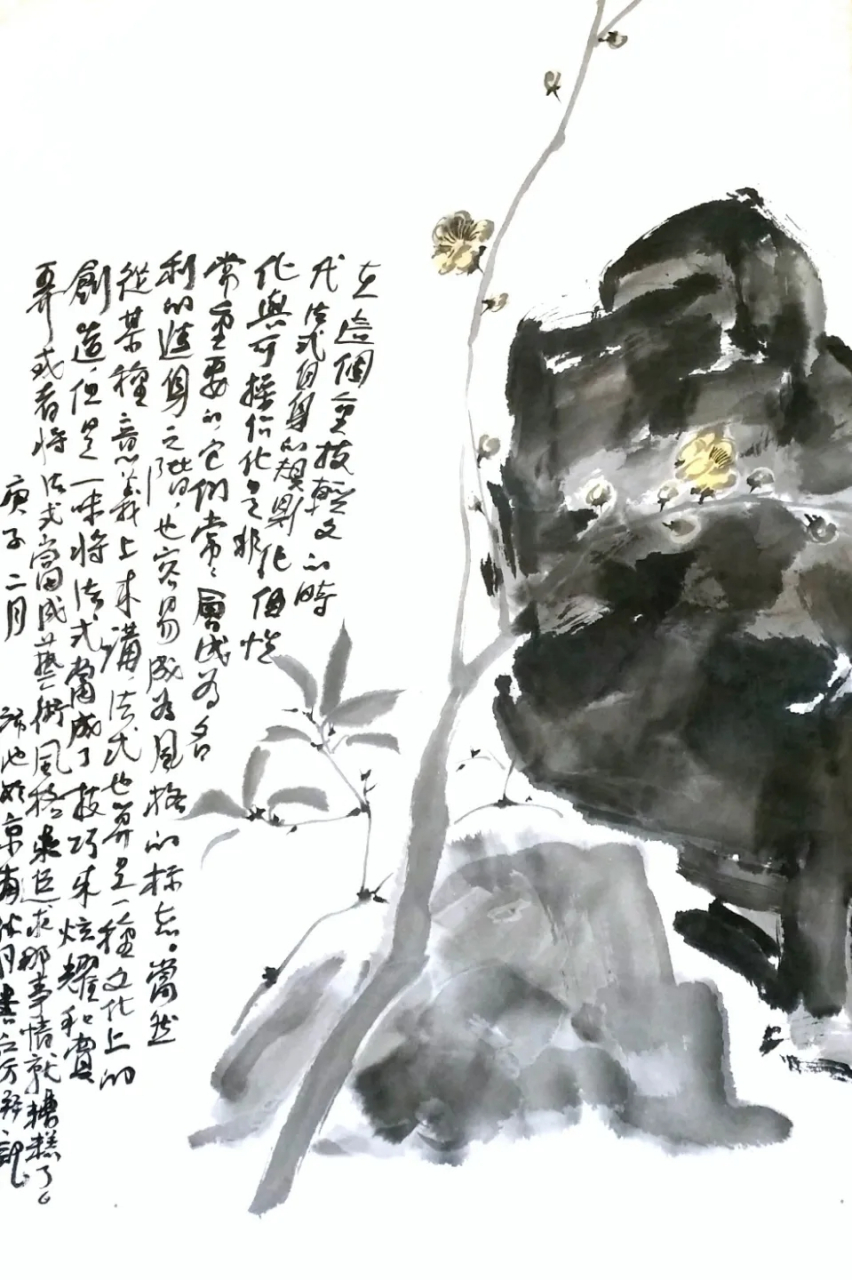 在這個重技輕文的時
代法式自身的規則化但恰
化與可操作化是非
常重要的它們常々會成為名
利的進身之階，也容易成為風格的标志。當然
從某種意義上来講，法式也算是一種文化上的
創造，但是一味將法式當成了技巧来炫耀和賣
弄或者將法式當成藝術風格来追求那事情就糟糕了。
庚子二月
於京南